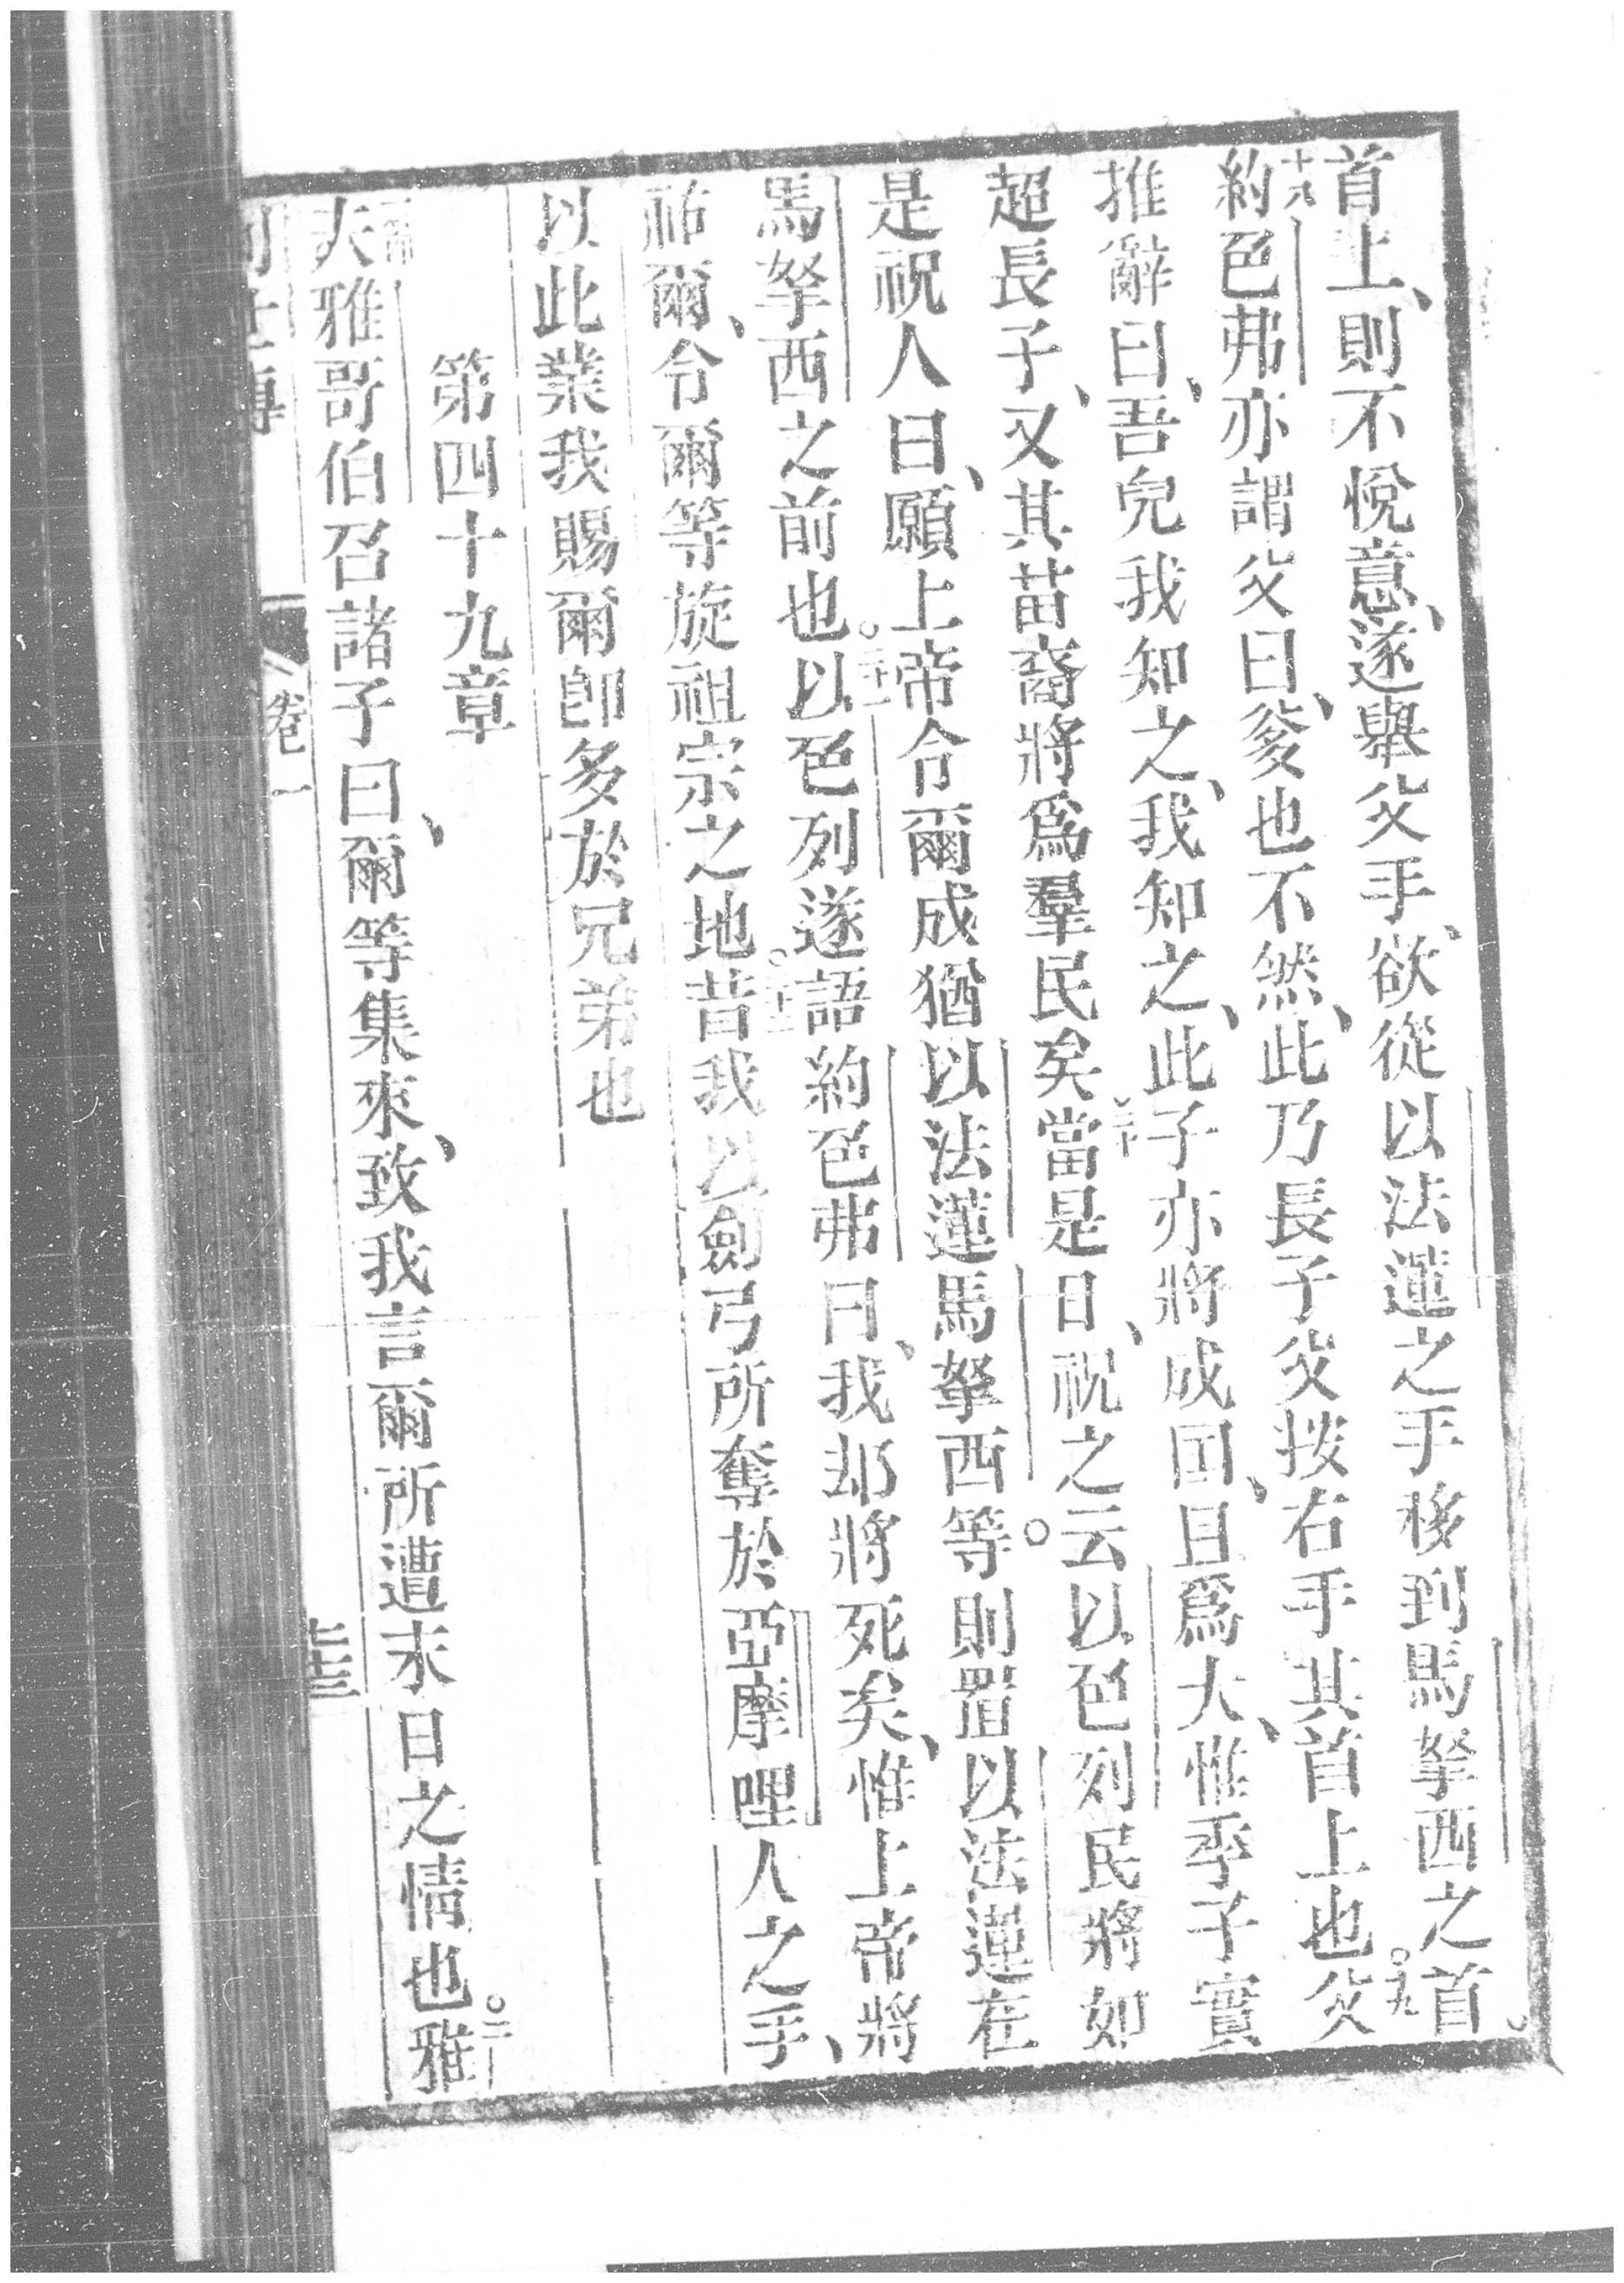 首上、則不悅意、遂舉父手、欲從以法蓮之手移到馬拏西之首。
十八約色弗亦謂父曰、爹也不然、此乃長子父按右手其首上也。十九父
推辭曰、吾兒我知之、我知之、此子亦將成国、且爲大、惟季子實
超長子、又其苗裔將爲羣民矣。二十當是日、祝之云。以色列民將如
是祝人曰、願上帝令爾成猶以法蓮馬拏西等則置以法蓮在
馬拏西之前也。二十一以色列遂語約色弗曰、我却將死矣、惟上帝將
祐爾、令爾等旋祖宗之地。二十二昔我以劍弓所奪於亞摩哩人之手、
以此業我賜爾卽多於兄弟也
第四十九章
夫雅哥伯召諸子曰、爾等集來、致我言爾所遭末日之情也。二雅
卷一
七十三